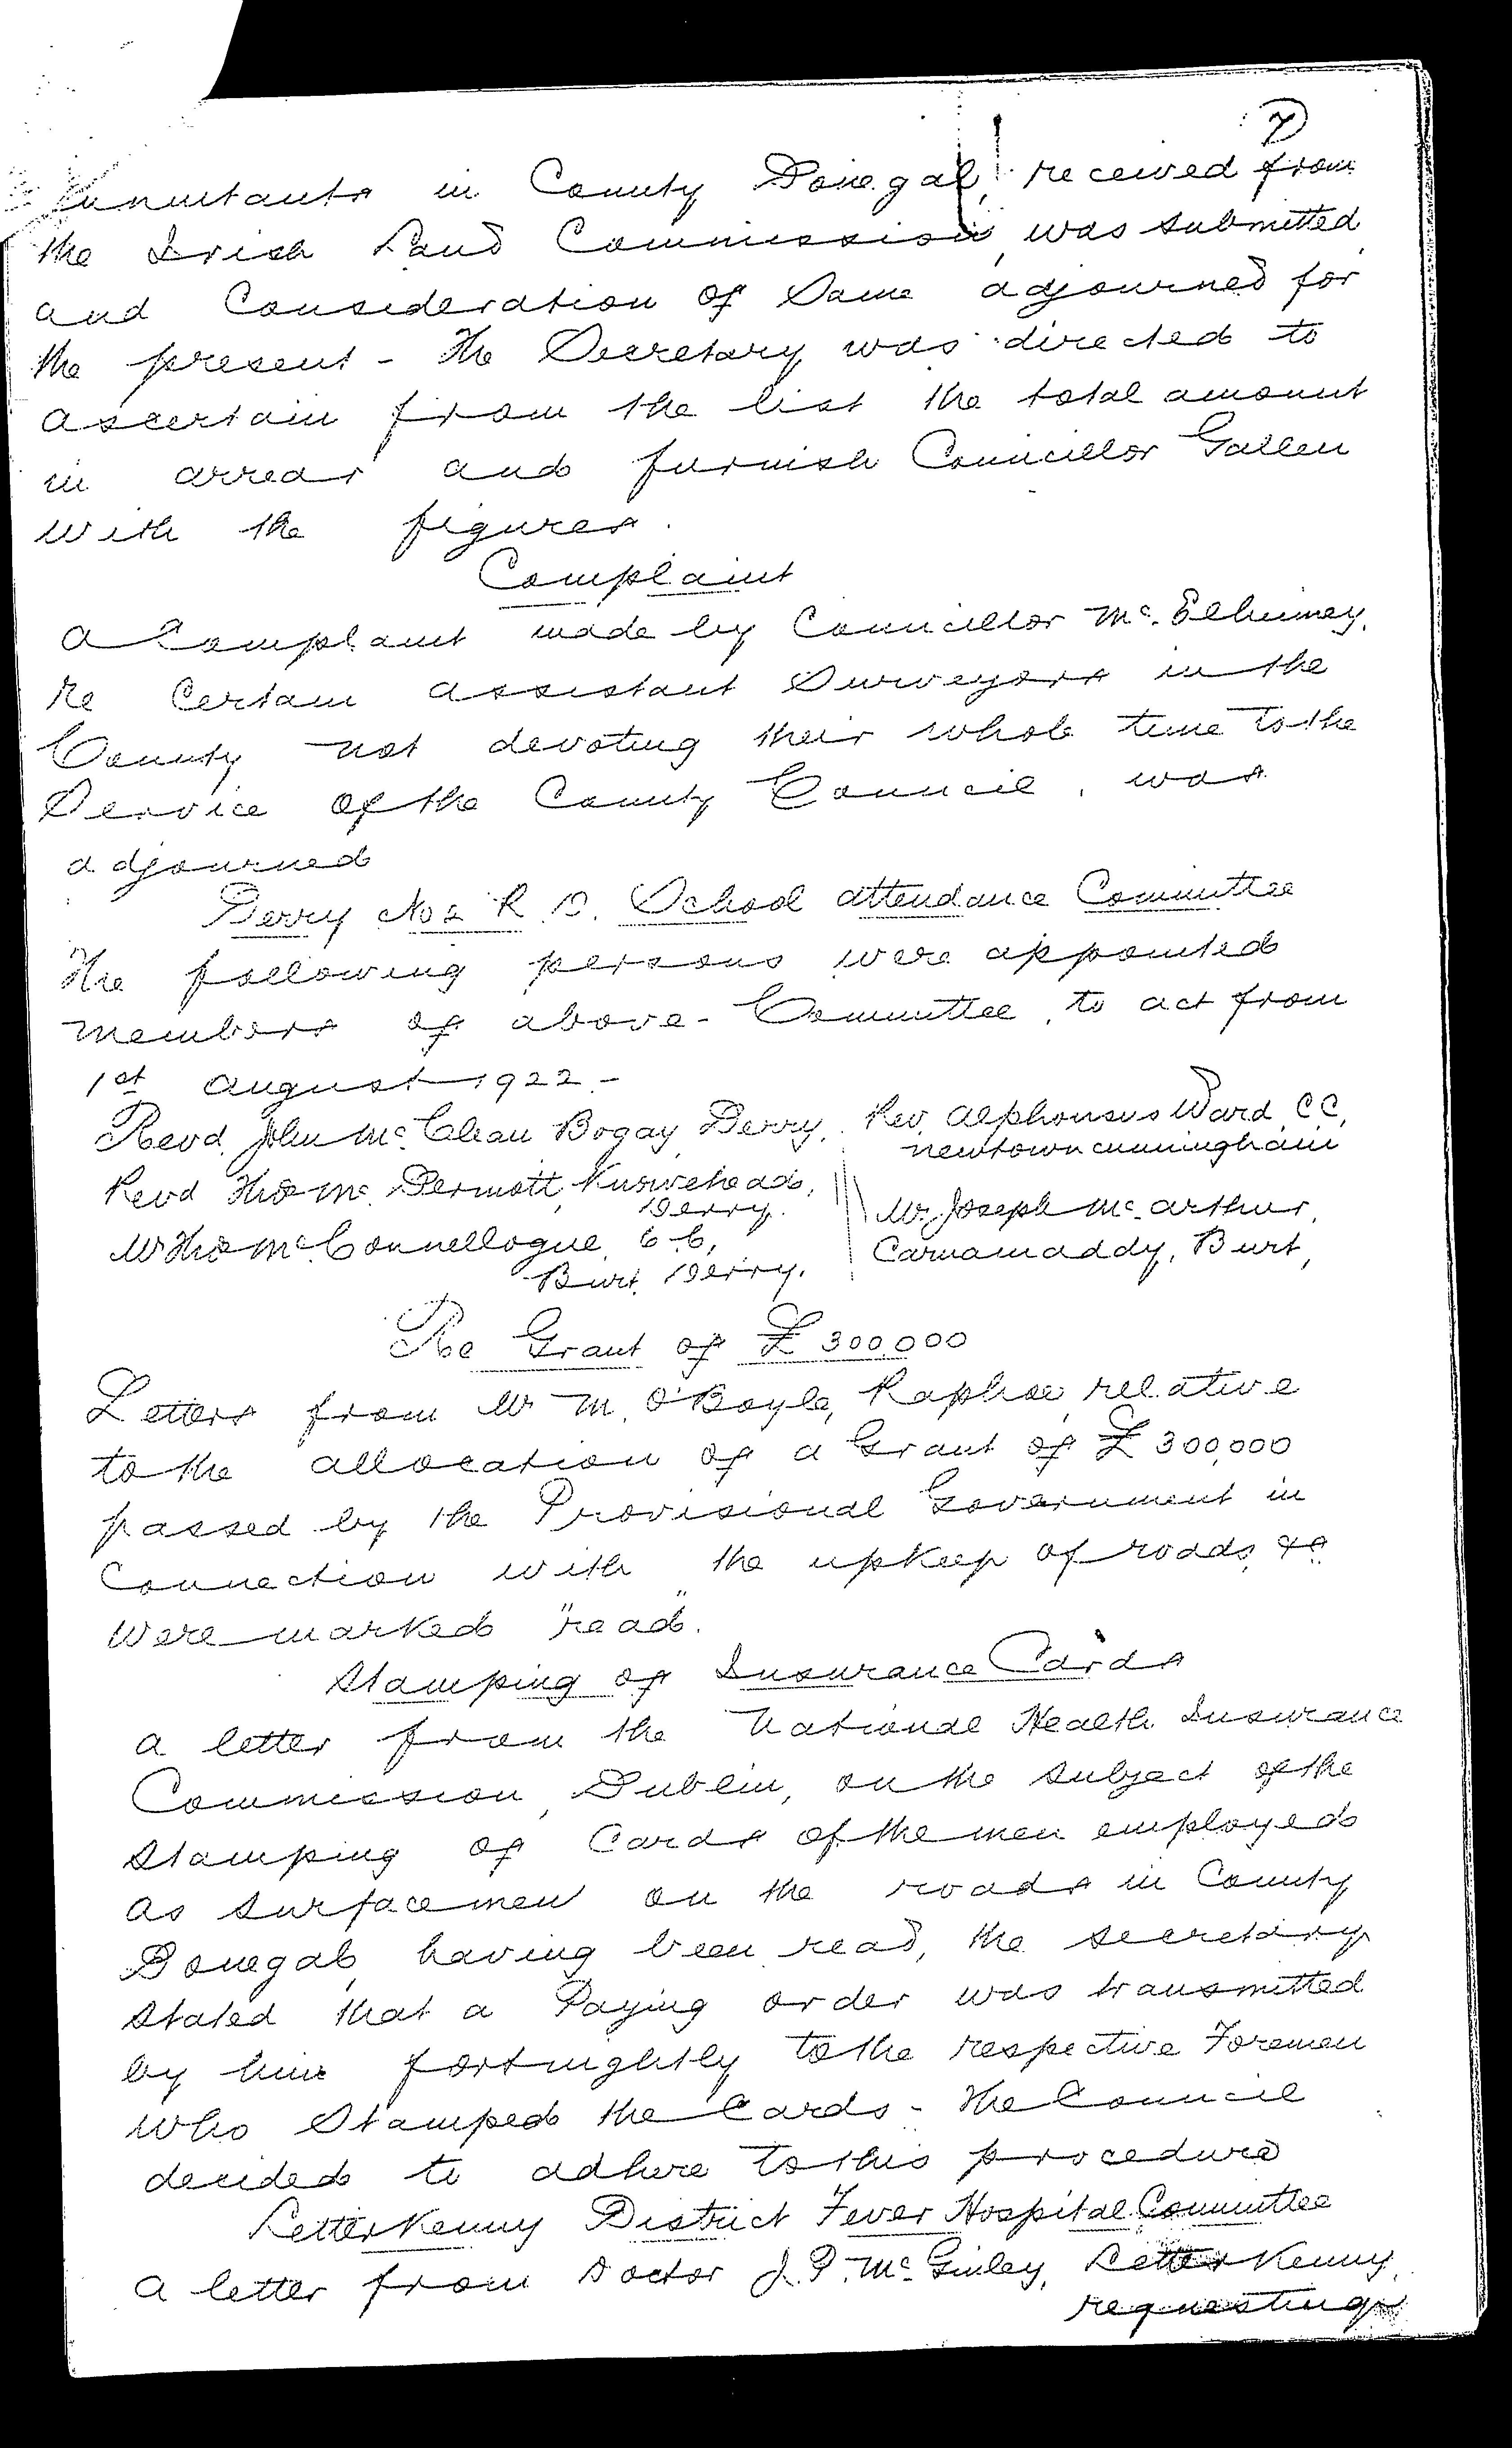 7
in County Donegal, received from
the Irish Land Commission, was submitted
and Consideration of Same adjourned for
the present - The Secretary was directed to
ascertain from the list the total amount
in arrear and furnish Councillor Gallen
with the figures.
Complaint
A Complaint made by Councillor Mc. Elhinney,
re Certain Assistant Surveyors in the
County not devoting their whole time to the
Service of the County Council, was
adjourned
Derry No 2 R. D. School Attendance Committee
The following persons were appointed
members of above - Committee, to act from
1st August 1922 -
Revd. John Mc. Clean Bogay Derry.
Revd Thos Mc. Dermott,
Derry.
Mr Thos Mc Connellogue, C.C.,
Burt, Derry.
Rev. Alphonsus Ward, C.C.,
Newtowncunningham
Mr. Joseph Mc. Arthur,
Carnamaddy, Burt,
Re Grant of £300,000
Letters from Mr M. O'Boyle, Raphoe, relative
to the allocation of a Grant of £300,000
passed by the Provisional Government in
Connection with the upkeep of roads, &c
were marked "read".
Stamping of Insurance Cards
A letter from the National Health Insurance
Commission, Dublin, on the subject of the
Stamping of Cards of the men employed
as surfacemen on the roads in County
Donegal, having been read, the secretary
stated that a Paying order was transmitted
by him fortnightly to the respective Foremen
who Stamped the Cards - The Council
decided to adhere to this procedure
Letterkenny District Fever Hospital Committee
A letter from Doctor J. P. Mc. Ginley, Letterkenny,
requesting